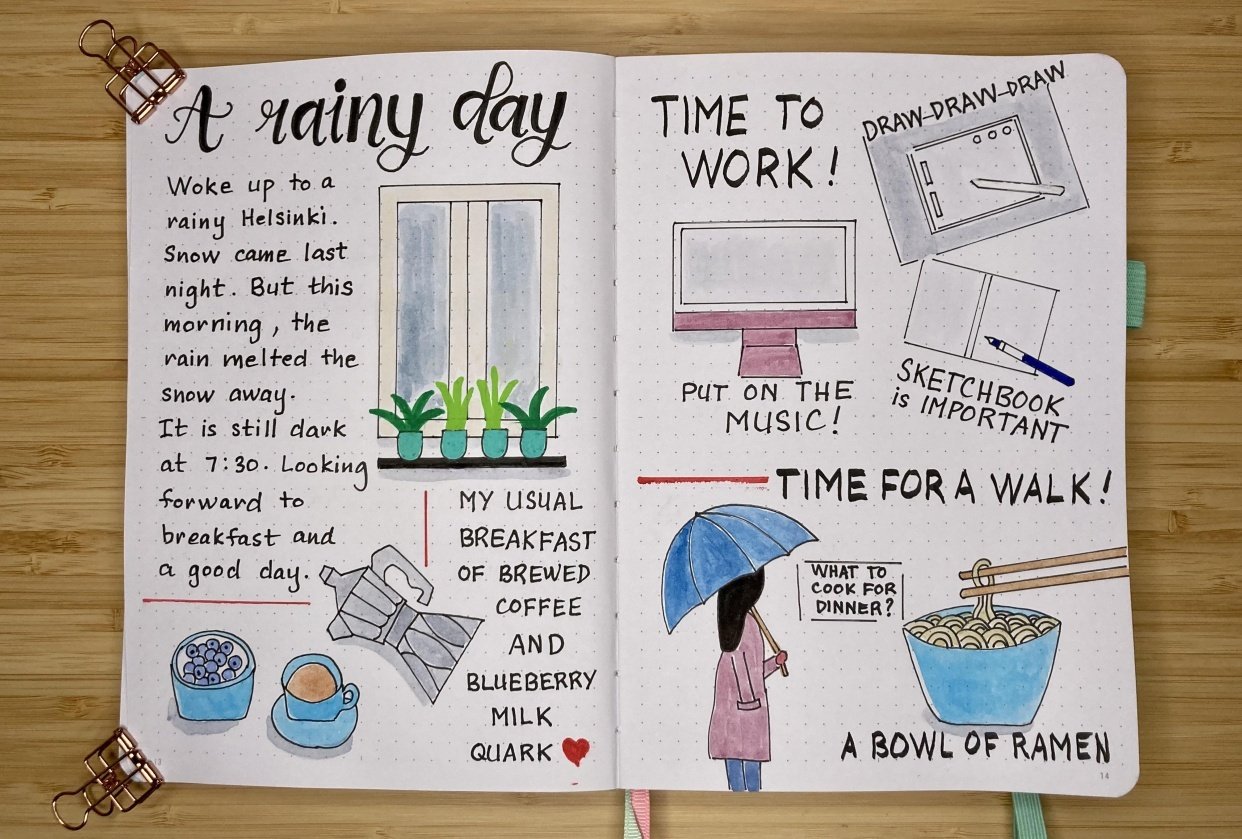 A rainy day
Woke up to a
rainy Helsinki.
Snow came last
night. But this
morning, the
rain melted the
snow away.
It is still dark
at 7:30. Looking
forward to
breakfast and
a good day.
MY USUAL
BREAKFAST
OF BREWED
COFFEE
AND
BLUEBERRY
MILK
QUARK
13
TIME TO
WORK!
DRAW-DRAW-DRAW
PUT ON THE
MUSIC!
SKETCHBOOK
is IMPORTANT
TIME FOR A WALK!
WHAT TO
COOK FOR
DINNER?
A BOWL OF RAMEN
14